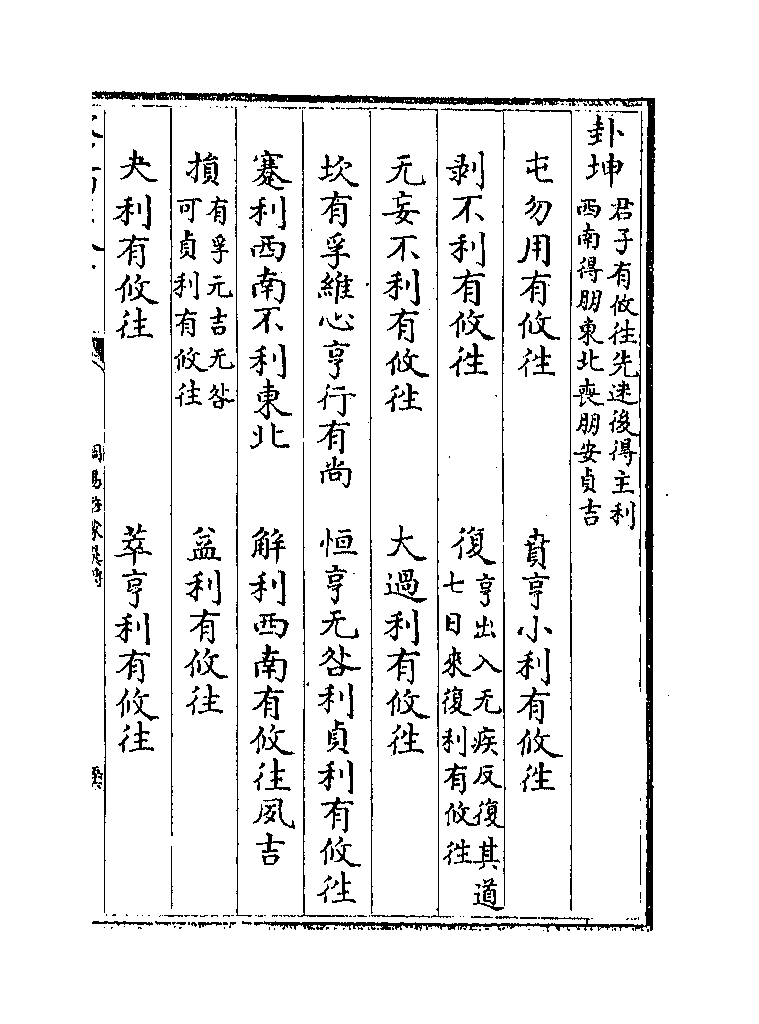 卦坤君子有攸往先迷後得主利
西南得朋東北喪朋安貞吉
屯勿用有攸往 賁亨小利有攸往
剥不利有攸往 復亨出入无疾反復其道
七日來復利有攸往
无妄不利有攸往 大過利有攸往
坎有孚維心亨行有尚 恒亨无咎利貞利有攸往
蹇利西南不利東北 解利西南有攸往夙吉
損有孚元吉无咎
可貞利有攸往 益利有攸往
夬利有攸往 萃亨利有攸往